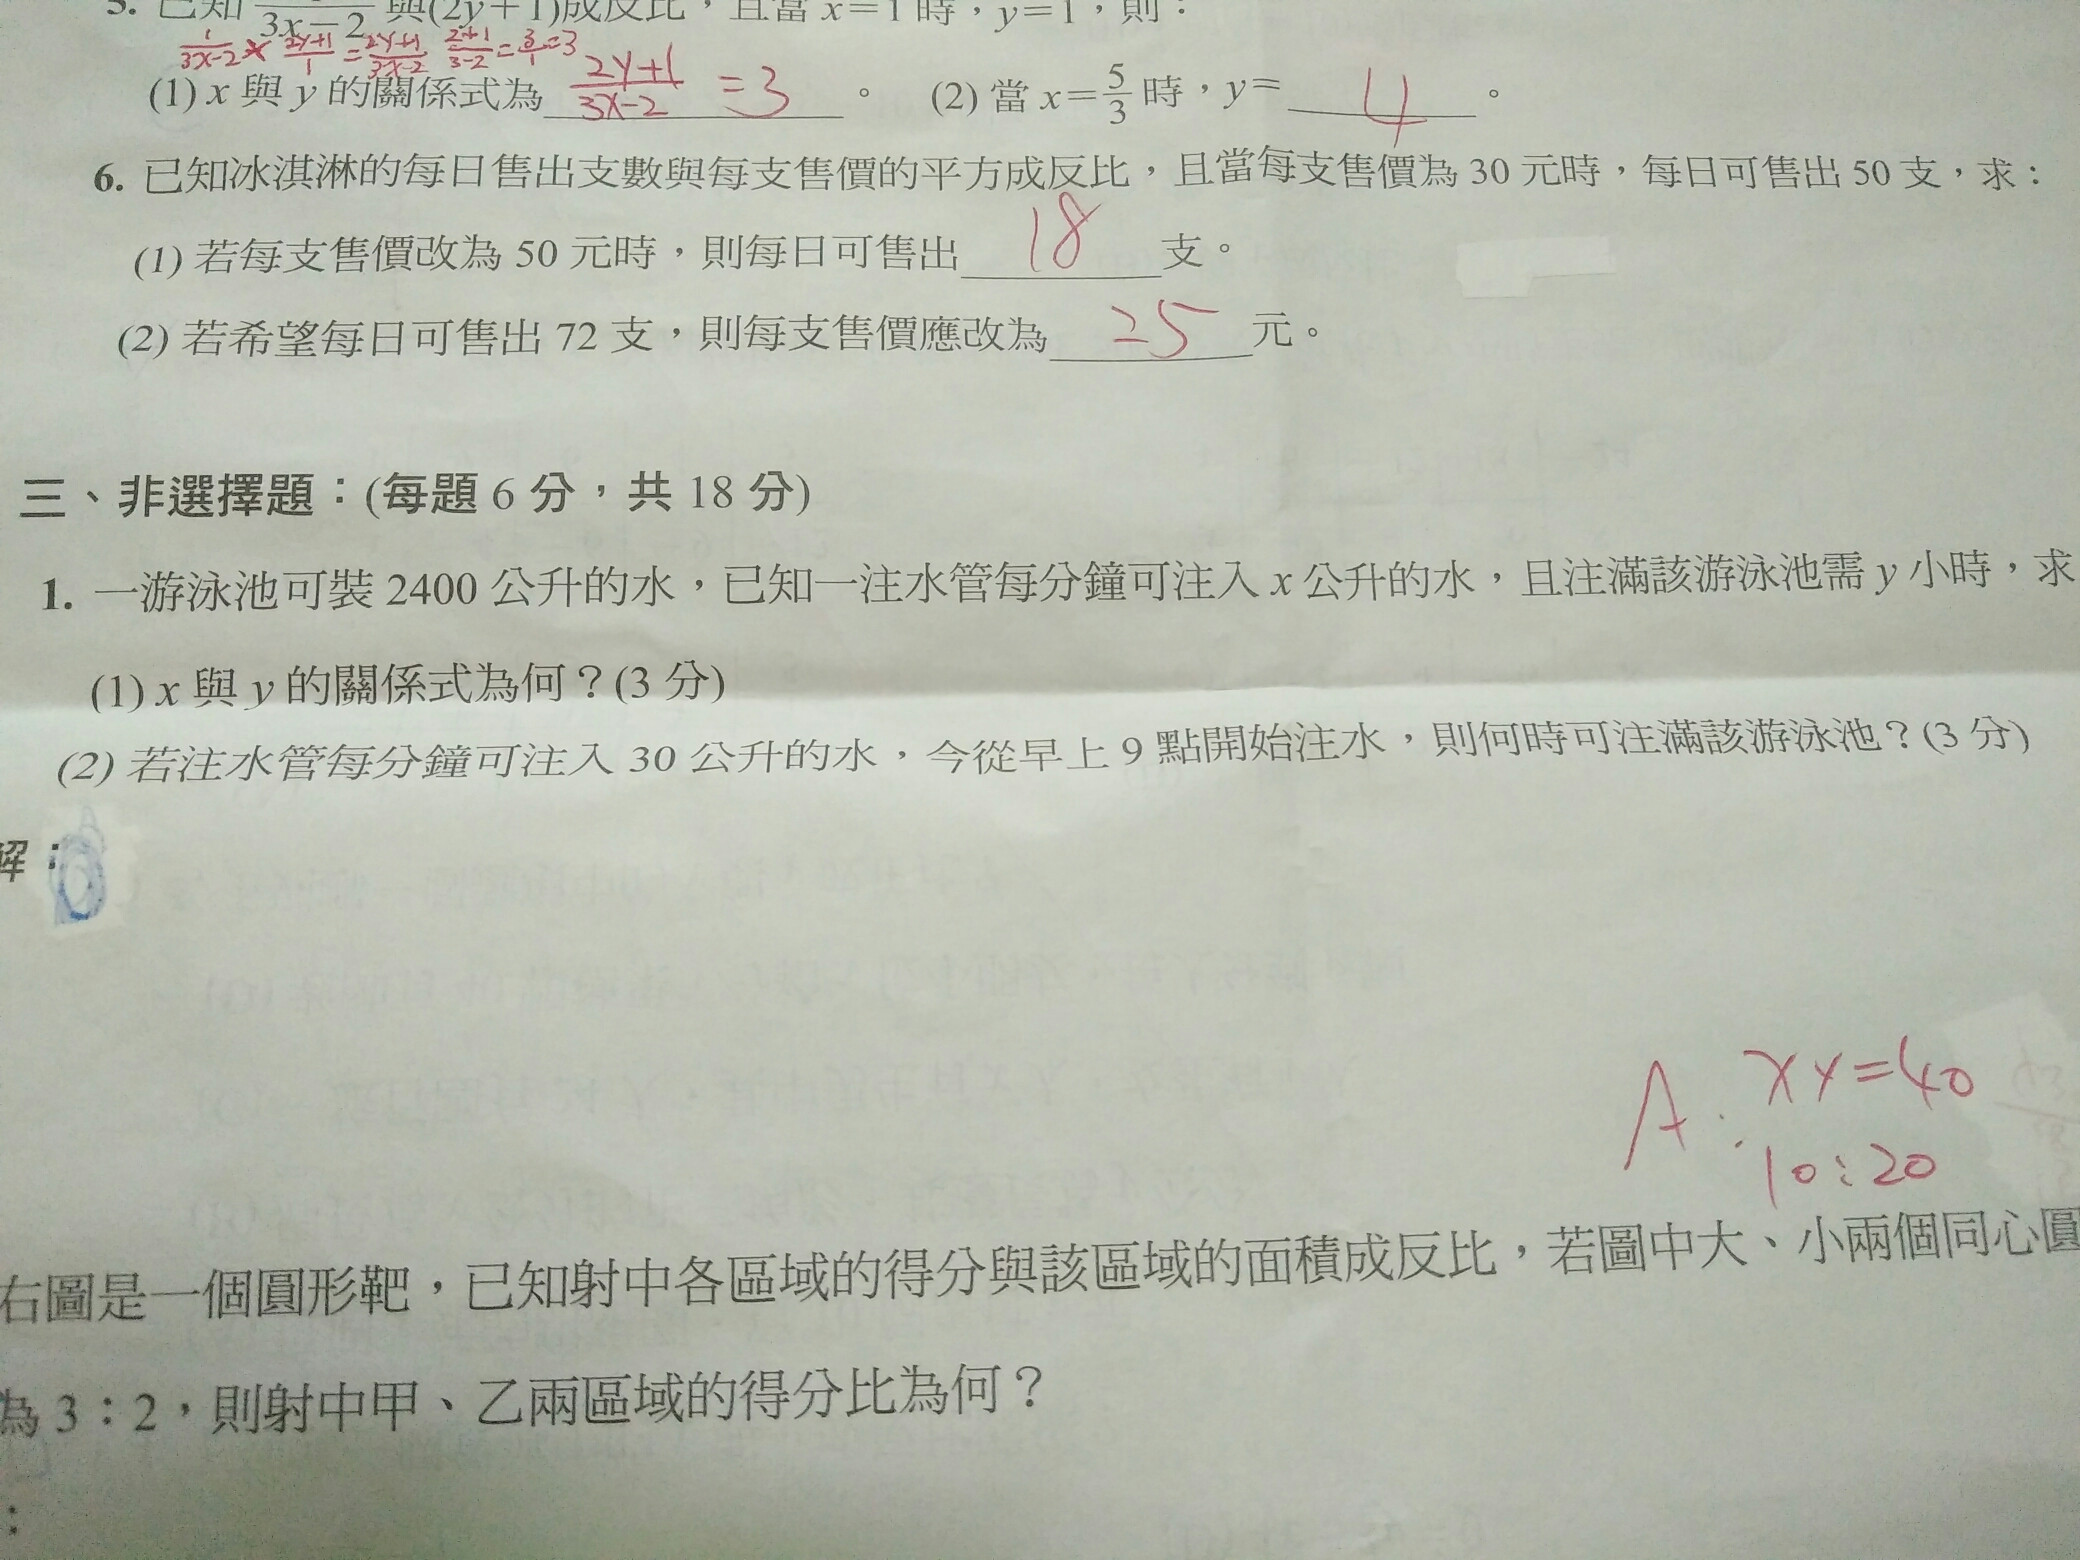 5. 已知 3x－2 與(2y＋1)成反比，且當 x＝1 時，y＝1，則：
1/3x-2 × 2y+1/1 = 2y+1/3x-2 2+1/3-2 = 3/1 = 3
(1) x 與 y 的關係式為 2y+1/3x-2 = 3 。 (2) 當 x＝5/3 時，y＝ 4 。
6. 已知冰淇淋的每日售出支數與每支售價的平方成反比，且當每支售價為 30 元時，每日可售出 50 支，求：
(1) 若每支售價改為 50 元時，則每日可售出 18 支。
(2) 若希望每日可售出 72 支，則每支售價應改為 25 元。
三、非選擇題：(每題 6 分，共 18 分)
1. 一游泳池可裝 2400 公升的水，已知一注水管每分鐘可注入 x 公升的水，且注滿該游泳池需 y 小時，求
(1) x 與 y 的關係式為何？(3 分)
(2) 若注水管每分鐘可注入 30 公升的水，今從早上 9 點開始注水，則何時可注滿該游泳池？(3 分)
解：
A: xy=40
10:20
右圖是一個圓形靶，已知射中各區域的得分與該區域的面積成反比，若圖中大、小兩個同心圓
為 3：2，則射中甲、乙兩區域的得分比為何？
: